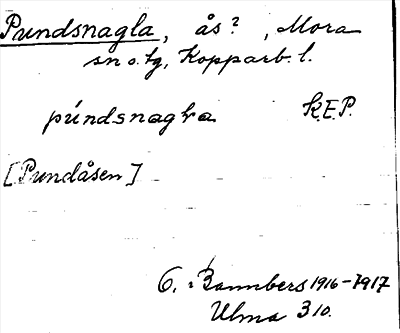 Pundsnagla, ås?, Mora
sn o. tg, Kopparb. l.
púndsnagla K.E.P.
[Pundåsen]
O. Bannbers 1916-1917
Ulma 310.